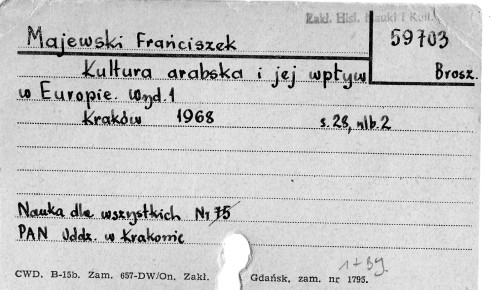 Zakł. Hist. Nauki i
Majewski Franciszek
59703
Kultura arabska i jej wpływ
Brosz.
w Europie. Wyd. 1
Kraków 1968 s. 28, nlb. 2
Nauka dla wszystkich Nr 75
PAN Oddz. w Krakowie
CWD. B-15b. Zam. 657-DW/On. Zakł. Gdańsk, zam. nr 1795.